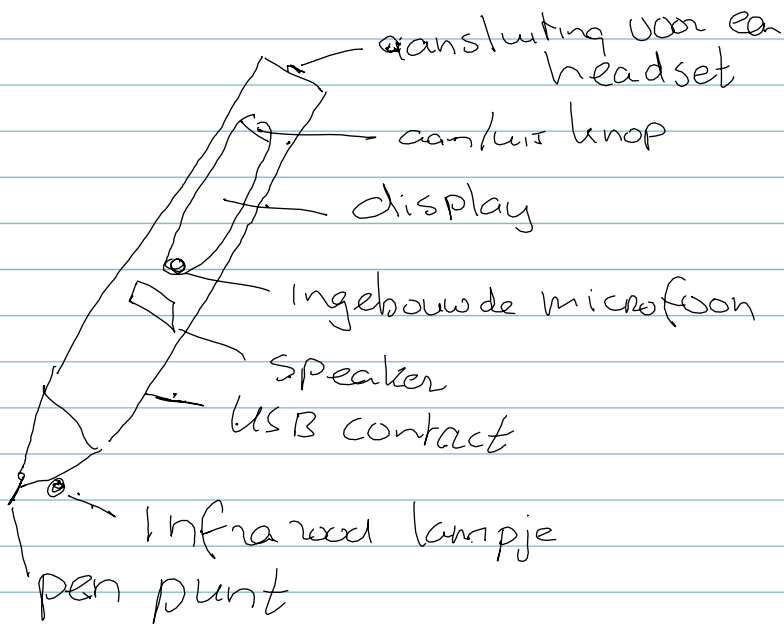 aansluiting voor een
headset
aan/uit knop
display
Ingebouwde microfoon
speaker
USB contact
Infra rood lampje
pen punt